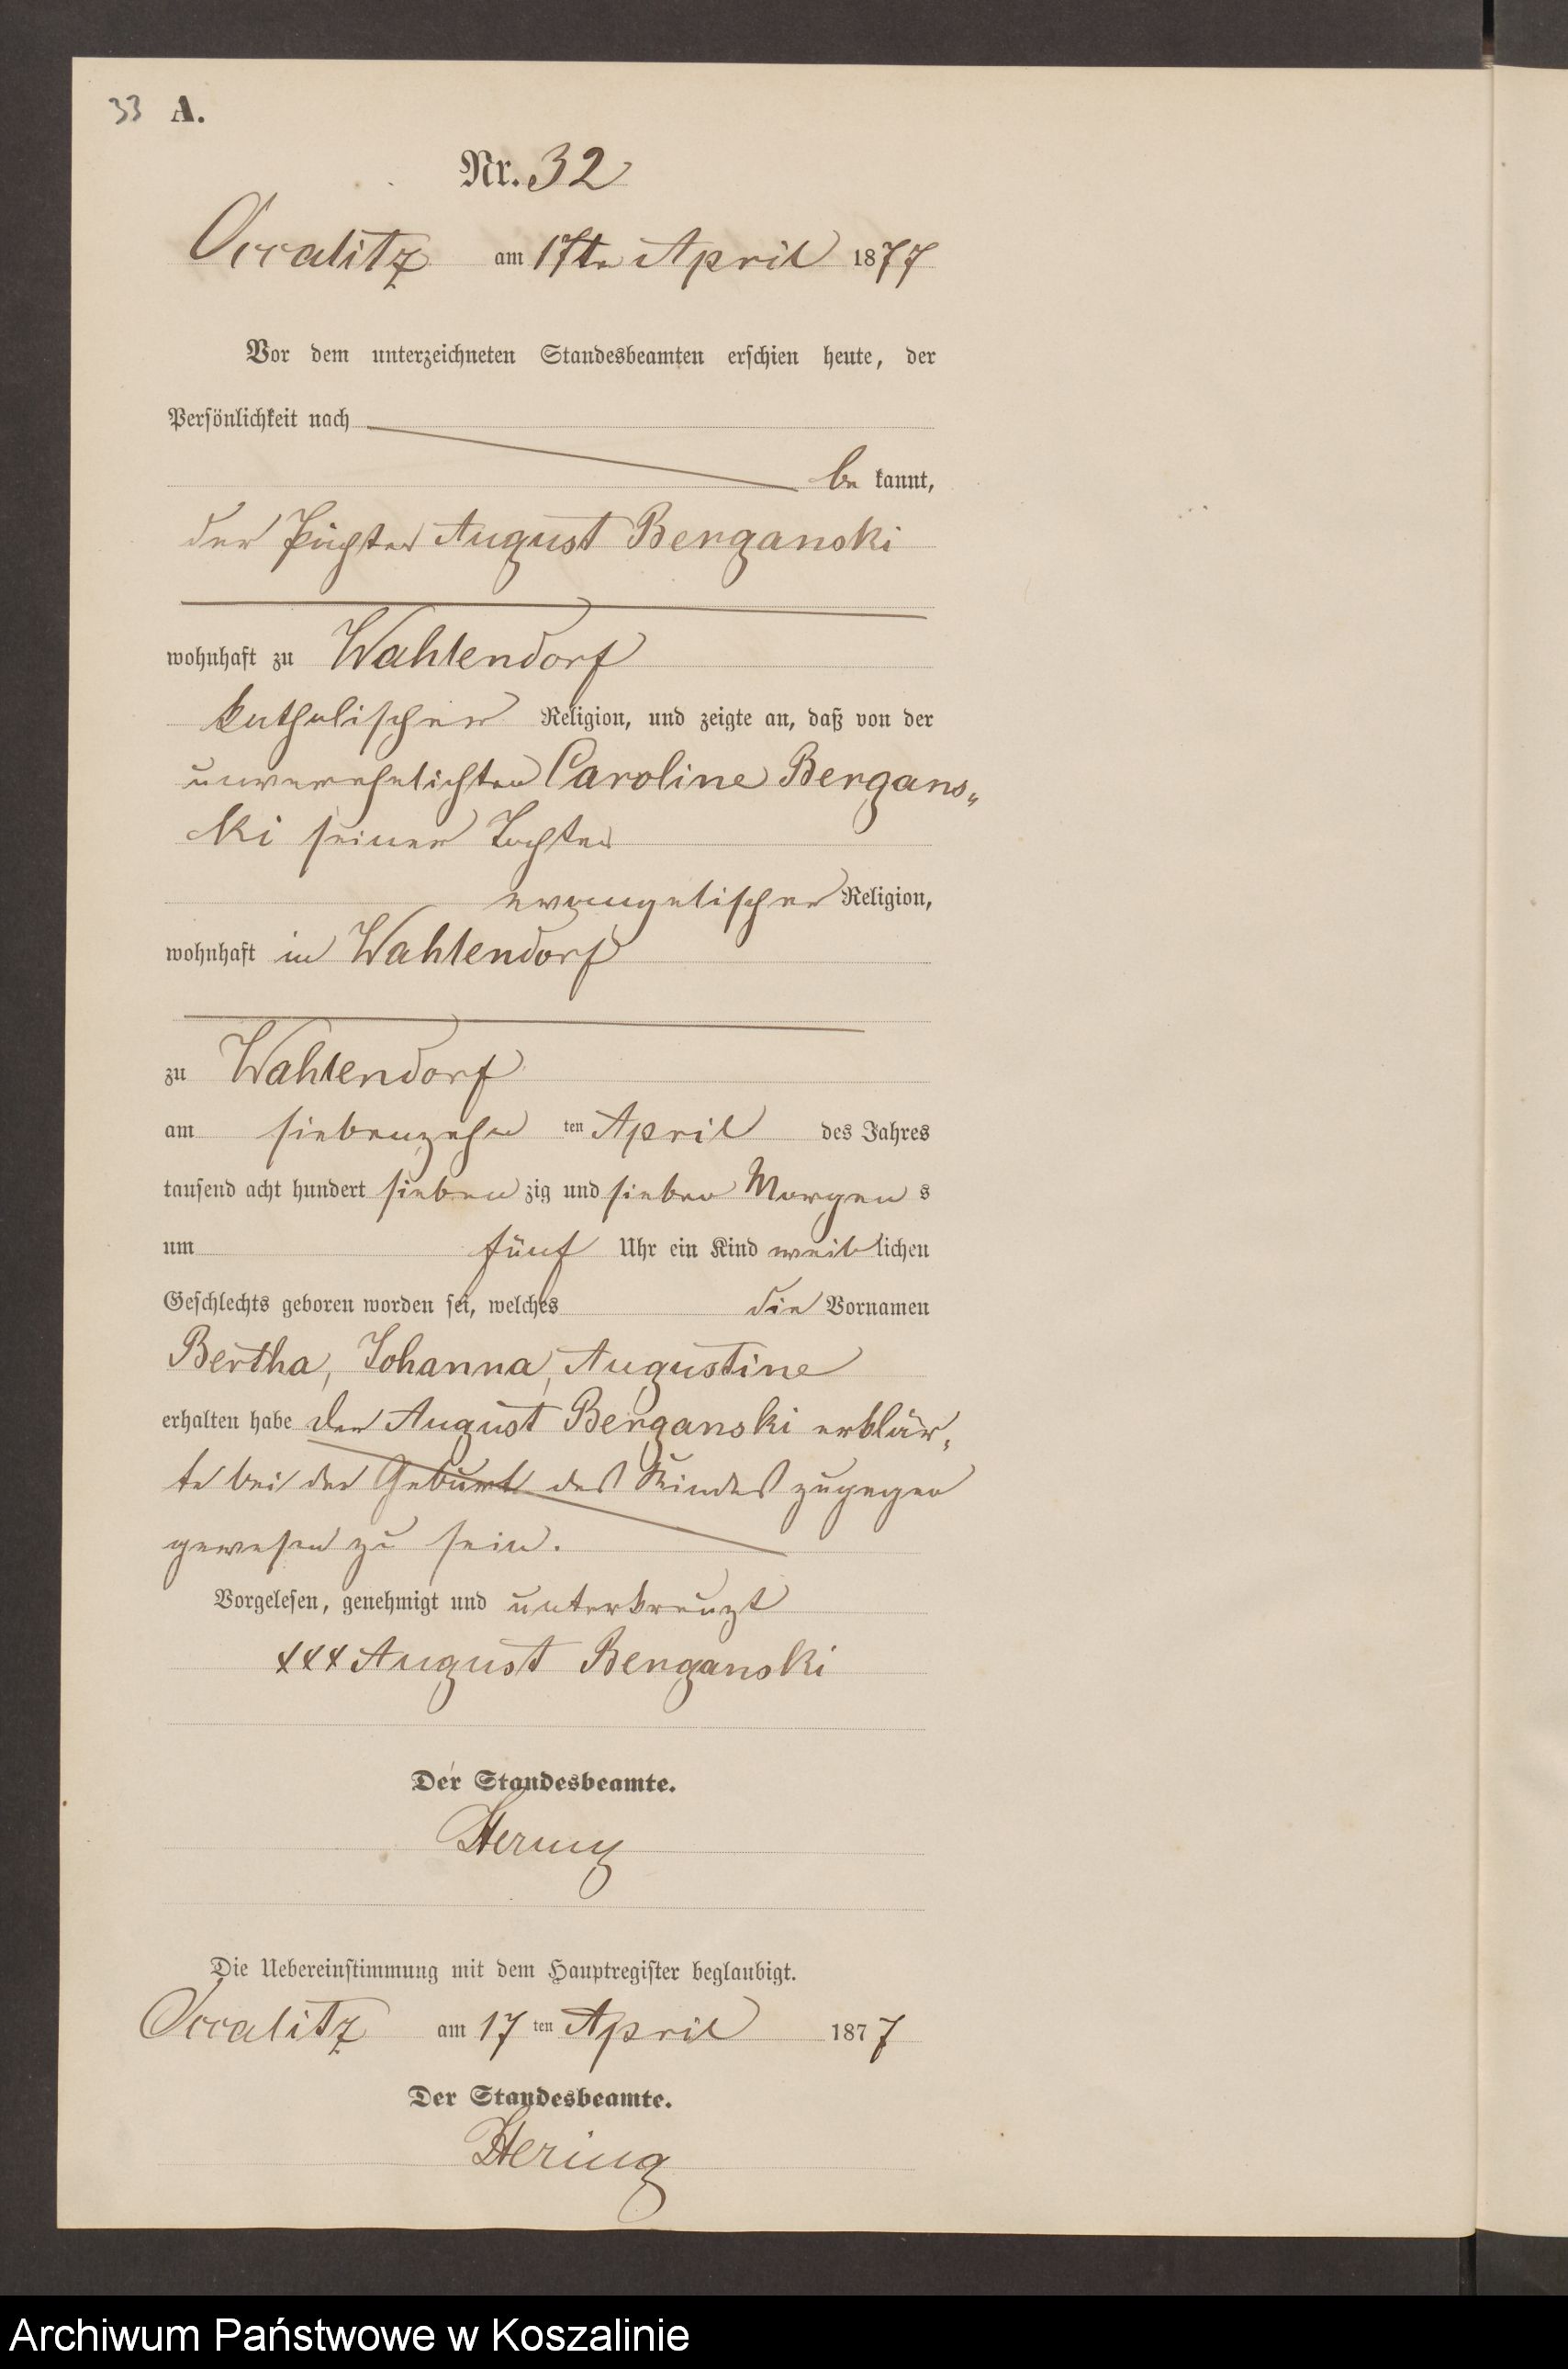 33 A.
Nr. 32
Occalitz am 17te April 1877
Vor dem unterzeichneten Standesbeamten erschien heute, der
Persönlichkeit nach
be kannt,
der Pächter August Berganski
wohnhaft zu Wahlendorf
katholischer Religion, und zeigte an, daß von der
unverehelichten Caroline Bergans„
ki seiner Tochter
evangelischer Religion,
wohnhaft in Wahlendorf
zu Wahlendorf
am siebenzehn ten April des Jahres
tausend acht hundert sieben zig und sieben Morgen s
um fünf Uhr ein Kind weib lichen
Geschlechts geboren worden sei, welches die Vornamen
Bertha, Johanna, Augustine
erhalten habe der August Berganski erklär„
te bei der Geburt des Kindes zugegen
gewesen zu sein.
Vorgelesen, genehmigt und unterkreuzt
xxx August Berganski
Der Standesbeamte.
Hering
Die Uebereinstimmung mit dem Hauptregister beglaubigt.
Occalitz am 17 ten April 1877
Der Standesbeamte.
Hering
Archiwum Państwowe w Koszalinie